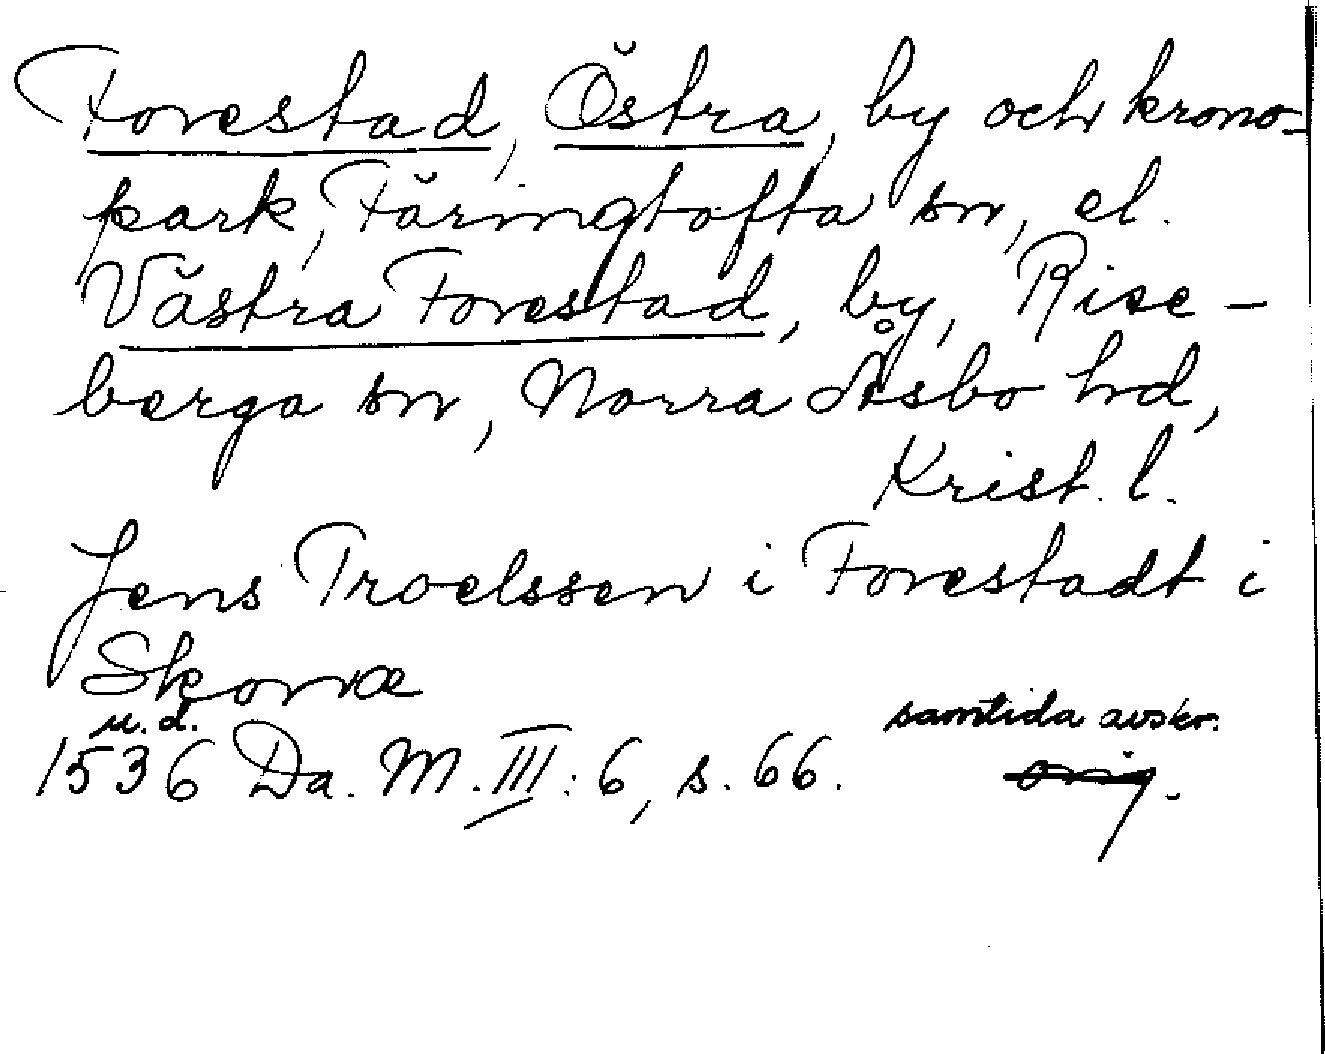 Forestad, Östra, by och krono-
park, Färingtofta sn, el.
Västra Forestad, by, Rise-
berga sn, Norra Åsbo hd,
Krist. l.
Jens Troelssen i Forestadt i
Skonæ
u.d. samtida avskr.
1536 Da. M. III: 6, s. 66. orig.